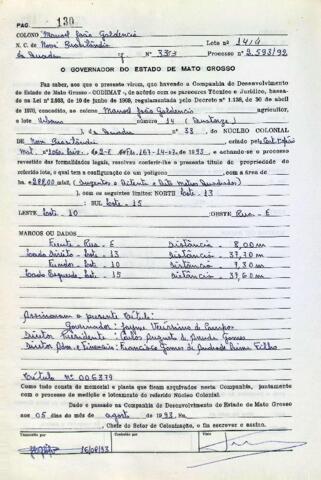 PAG. 130
COLONO Manoel João Galdencio Lote n.º 14/4
N. C. de Nova Brasilândia
la Quadra N.º 33 Processo n.º 2.593/92
O GOVERNADOR DO ESTADO DE MATO GROSSO
Faz saber, aos que o presente virem, que havendo a Companhia de Desenvolvimento
do Estado de Mato Grosso - CODEMAT -, de acordo com os pareceres Técnico e Jurídico, basea-
da na Lei n.º 2.898, de 10 de junho de 1969, regulamentada pelo Decreto n.º 1.138, de 30 de abril
de 1970, concedido ao colono, Manoel João Galdencio agricultor,
o lote Urbano número 14 (Quatorze)
da Quadra n.º 33, do NÚCLEO COLONIAL
DE Nova Brasilândia criado pelo
e achando-se o processo
revestido das formalidades legais, resolveu conferir-lhe o presente título de propriedade do
referido lote, o qual tem a configuração de um polígono de área
ha 288,00 m² (Duzentos e Oitenta e Oito Metros Quadrados)
, com os seguintes limites: NORTE Lote 13
SUL Lote - 15
LESTE Lote - 10 OESTE Rua - E
MARCOS OU DADOS
Frente - Rua - E Distância - 8,00 m
Lado Direito - Lote - 13 Distância - 37,30 m
Fundos - Lote - 10 Distância - 7,30 m
Lado Esquerdo - Lote - 15 Distância - 37,60 m
Assinaram o presente título:
Governador: Jayme Veríssimo de Campos
Diretor Presidente: Carlos Augusto de Arruda Gomes
Diretor Adm. e Financeiro: Francisco Gomes de Andrade Lima Filho
Título N.º 006379
Como tudo consta do memorial e planta que ficam arquivados nesta Companhia, juntamente
com o processo de medição e loteamento do referido Núcleo Colonial.
Dado e passado na Companhia de Desenvolvimento do Estado de Mato Grosso
aos 05 dias do mês de agosto de 1993. Eu,
, Chefe do Setor de Colonização, o fiz escrever e assino.
Transcrito por Em Visto
16/08/93